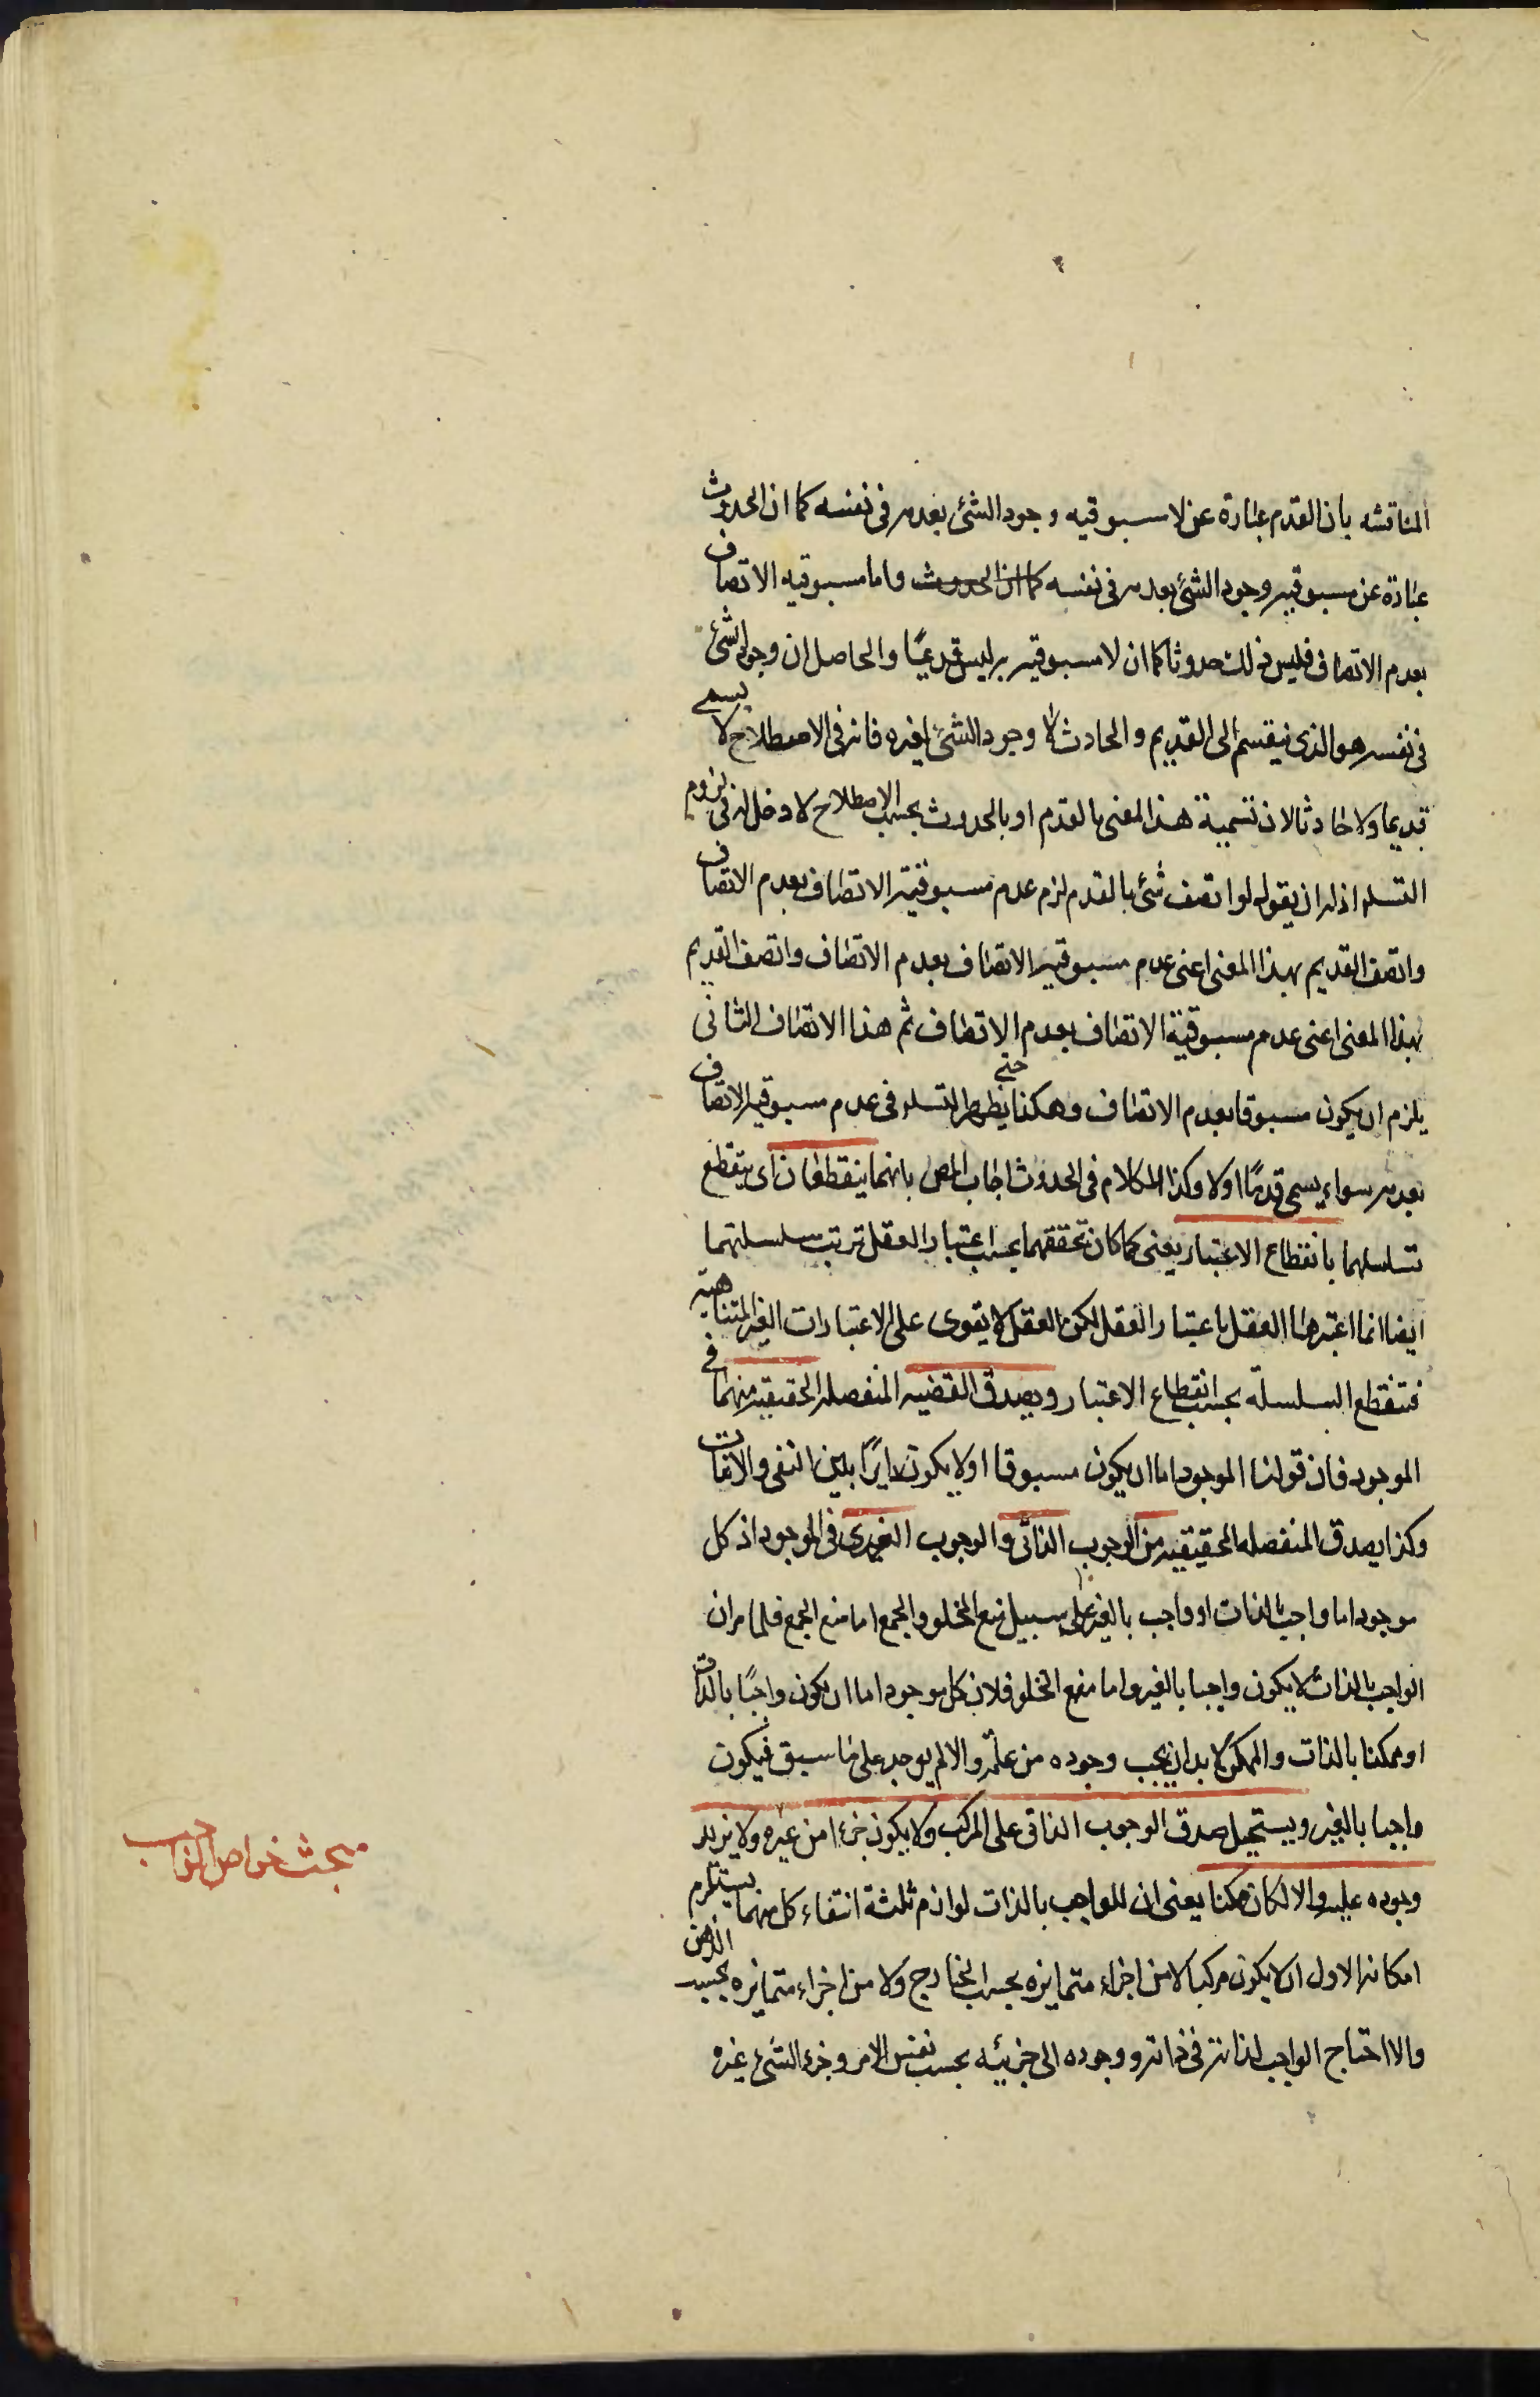 المناقشه بان القدم عبارة عن لا مسبوقيه وجود الشئ بعدمه فى نفسه كما ان الحدوث
عبارة عن مسبوقيه وجود الشئ بعدمه فى نفسه كما ان الحدوث واما مسبوقيه الاتصاف
بعدم الاتصاف فليس ذلك حدوثا كما ان لا مسبوقيه به ليس قديمًا والحاصل ان وجود الشئ
فى نفسه هو الذى ينقسم الى القديم والحادث لا وجود الشئ لغيره فانه فى الاصطلاح لا يسمى
قديما ولا حادثا لان تسمية هذا المعنى بالقدم او بالحدوث بحسب الاصطلاح لا دخل له فى لزوم
التسلسل اذ له ان يقول لو اتصف شئ بالقدم لزم عدم مسبوقية الاتصاف بعدم الاتصاف
واتصف القديم بهذا المعنى اعنى عدم مسبوقيه الاتصاف بعدم الاتصاف واتصف القديم
بهذا المعنى اعنى عدم مسبوقية الاتصاف بعدم الاتصاف ثم هذا الاتصاف الثانى
يلزم ان يكون مسبوقا بعدم الاتصاف وهكذا حتى يظهر التسلسل فى عدم مسبوقيه الاتصاف
بعدمه سواء يسمى قدمًا اولا وكذا الكلام فى الحدوث اجاب المص بانهما ينقطعان اى ينقطع
تسلسلهما بانقطاع الاعتبار يعنى كما كان تحققهما بحسب اعتبار العقل ترتب سلسلتهما
ايضا انما اعتبرها العقل باعتبار العقل لكن العقل لا يقوى على الاعتبارات الغير المتناهيه
فتنقطع السلسلة بحسب انقطاع الاعتبار ويصدق القضيه المنفصله الحقيقيه منهما فى
الموجود فان قولنا الموجود اما ان يكون مسبوقا اولا يكون دايرًا بين النفى والاثبات
وكذا يصدق المنفصله الحقيقيه من الوجوب الذاتى والوجوب الغيرى فى الموجود اذ كل
موجود اما واجب بالذات او واجب بالغير على سبيل منع الخلو والجمع اما منع الجمع فلما مر ان
الواجب بالذات لا يكون واجبا بالغير واما منع الخلو فلان كل موجود اما ان يكون واجبًا بالذات
او ممكنا بالذات والممكن لا بد ان يجب وجوده من علته والا لم يوجد على ما سبق فيكون
واجبا بالغير ويستحيل صدق الوجوب الذاتى على المركب ولا يكون جزءا من غيره ولا يزيد
وجوده عليه والا لكان ممكنا يعنى ان للواجب بالذات لوازم ثلثة انتفاء كل منهما يستلزم
امكانه الاول ان لا يكون مركبا لا من اجزاء متمايزه بحسب الخارج ولا من اجزاء متمايزه بحسب الذهن
والا احتاج الواجب لذاته فى ذاته ووجوده الى جزئيه بحسب نفس الامر وجزء الشئ غيره
مبحث خواص الواجب